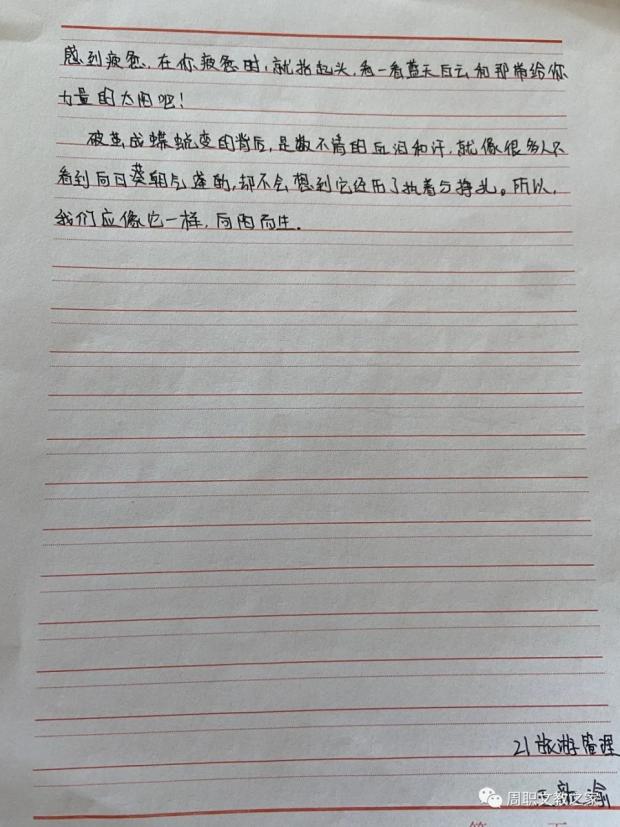 感到疲惫，在你疲惫时，就抬起头，看一看蓝天白云和那带给你
力量的太阳吧！
破茧成蝶蜕变的背后，是数不清的血泪和汗，就像很多人只
看到向日葵朝气蓬勃，却不会想到它经历了执着与挣扎。所以，
我们应像它一样，向阳而生．
21旅游管理
周职文教之家